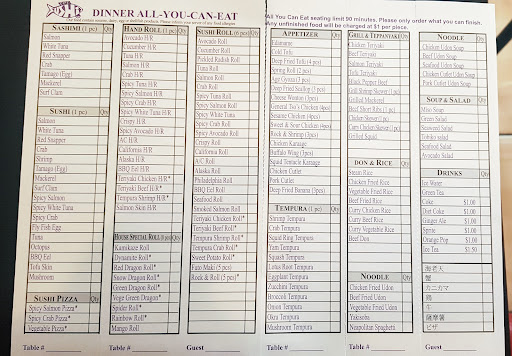 DINNER ALL-YOU-CAN-EAT
All You Can Eat seating limit 90 minutes. Please only order what you can finish.
Any unfinished food will be charged at $1 per piece.
SASHIMI (1 pc) Qty
Salmon
White Tuna
Red Snapper
Crab
Tamago (Egg)
Mackerel
Surf Clam
SUSHI (1 pc)
Salmon
White Tuna
Red Snapper
Crab
Shrimp
Tamago (Egg)
Mackerel
Surf Clam
Spicy Salmon
Spicy White Tuna
Spicy Crab
Fly Fish Egg
Tuna
Octopus
BBQ Eel
Tofu Skin
Mushroom
SUSHI PIZZA Qty
Spicy Salmon Pizza*
Spicy Crab Pizza*
Vegetable Pizza*
Table #
HAND ROLL (1 pc) Qty
Avocado H/R
Cucumber H/R
Tuna H/R
Salmon H/R
Crab H/R
Spicy Tuna H/R
Spicy Salmon H/R
Spicy Crab H/R
Spicy White Tuna H/R
Crispy H/R
Spicy Avocado H/R
AC H/R
California H/R
Alaska H/R
BBQ Eel H/R
Teriyaki Chicken H/R*
Teriyaki Beef H/R*
Tempura Shrimp H/R*
Salmon Skin H/R
HOUSE SPECIAL ROLL (8 pcs) Qty
Kamikaze Roll
Dynamite Roll*
Red Dragon Roll*
Snow Dragon Roll*
Green Dragon Roll*
Vege Green Dragon*
Spider Roll*
Rainbow Roll*
Mango Roll
Table #
SUSHI ROLL (6 pcs) Qty
Avocado Roll
Cucumber Roll
Pickled Radish Roll
Tuna Roll
Salmon Roll
Crab Roll
Spicy Tuna Roll
Spicy Salmon Roll
Spicy Crab Roll
Spicy White Tuna Roll
Spicy Avocado Roll
Crispy Roll
California Roll
A/C Roll
Alaska Roll
Philadelphia Roll
BBQ Eel Roll
Seafood Roll
Smoked Salmon Roll
Teriyaki Chicken Roll*
Teriyaki Beef Roll*
Tempura Shrimp Roll*
Tempura Crab Roll*
Sweet Potato Roll*
Futo Maki (5 pcs)
Rock & Roll (5 pcs)*
Guest
APPETIZER Qty
Edamame
Cold Tofu
Deep Fried Tofu (4 pcs)
Spring Roll (2 pcs)
Age Gyoza (3 pcs)
Deep Fried Scallop (3 pcs)
Cheese Wonton (3pcs)
General Tao's Chicken (4pcs)
Sesame Chicken (4pcs)
Sweet & Sour Chicken (4pcs)
Rock & Shrimp (3pcs)
Chicken Karaage
Buffalo Wing (3pcs)
Squid Tentacle Karaage
Chicken Cutlet
Pork Cutlet
Deep Fried Banana (3pcs)
TEMPURA (1 pc) Qty
Shrimp Tempura
Crab Tempura
Squid Ring Tempura
Yam Tempura
Squash Tempura
Lotus Root Tempura
Eggplant Tempura
Zucchini Tempura
Broccoli Tempura
Onion Tempura
Okra Tempura
Mushroom Tempura
Table #
GRILL & TEPPANYAKI Qty
Chicken Teriyaki
Beef Teriyaki
Salmon Teriyaki
Tofu Teriyaki
Black Pepper Beef
Grill Shrimp Skewer (1pc)
Grilled Mackerel
Beef Short Ribs (1 pc)
Chicken Skewer (1pc)
Curry Chicken Skewer (1pc)
Grilled Squid
DON & RICE Qty
Steam Rice
Chicken Fried Rice
Vegetable Fried Rice
Beef Fried Rice
Curry Chicken Rice
Curry Beef Rice
Curry Vegetable Rice
Beef Don
NOODLE Qty
Chicken Fried Udon
Beef Fried Udon
Vegetable Fried Udon
Yakisoba
Neapolitan Spaghetti
Guest
NOODLE Qty
Chicken Udon Soup
Beef Udon Soup
Seafood Udon Soup
Chicken Cutlet Udon Soup
Pork Cutlet Udon Soup
SOUP & SALAD Qty
Miso Soup
Green Salad
Seaweed Salad
Tobiko salad
Avocado salad
DRINKS Qty
Ice Water
Green Tea
Coke $1.00
Diet Coke $1.00
Ginger Ale $1.00
Sprite $1.00
Orange Pop $1.00
Ice Tea $1.50
海老天
蟹
カニカマ
鶏
牛
薩摩薯
ピザ